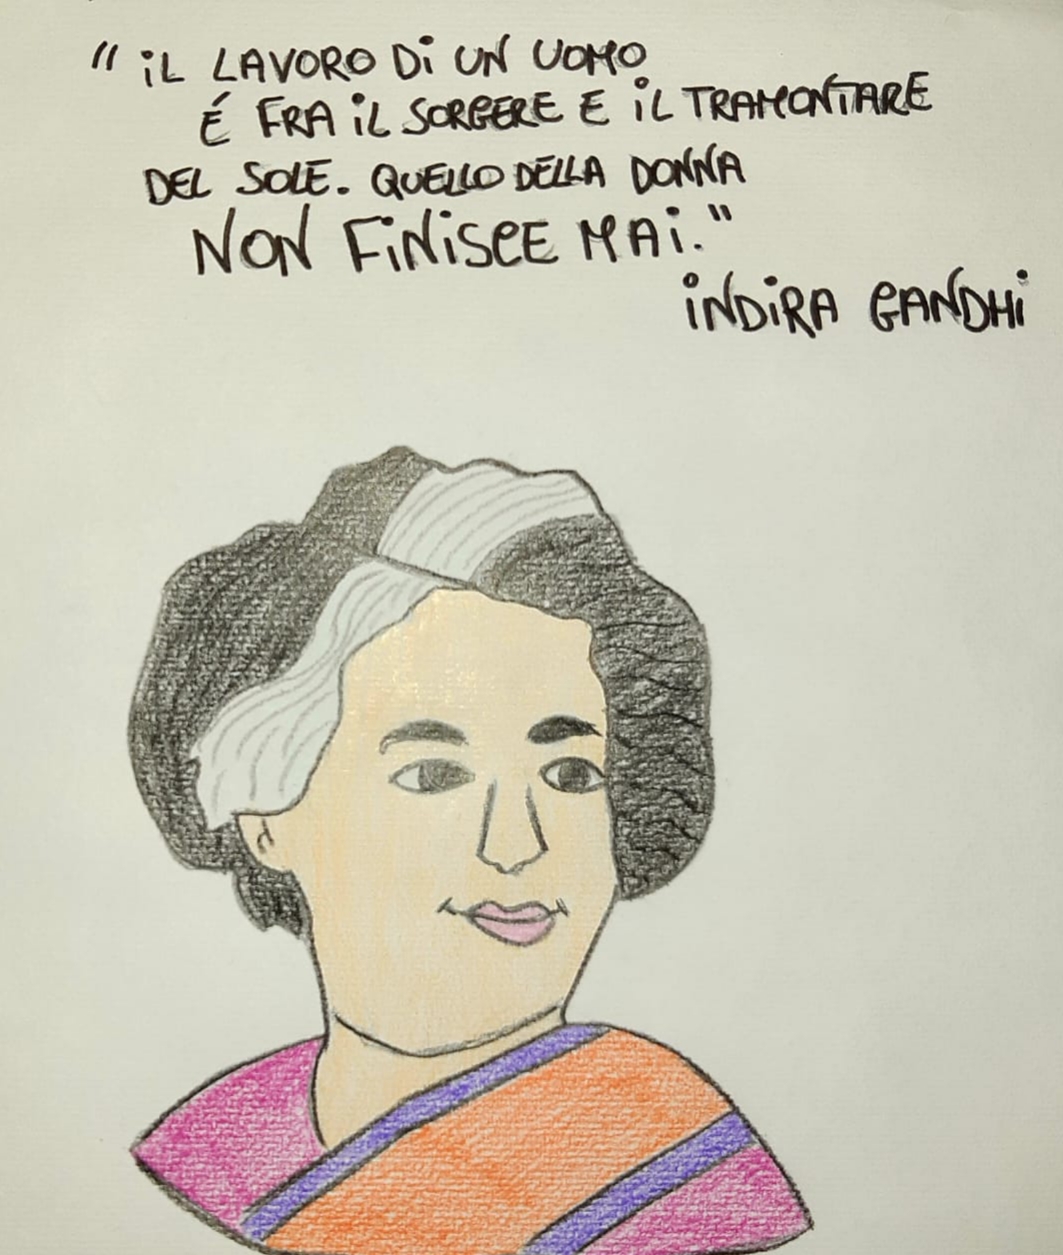 "iL LAVORO Di UN UOMO
É FRA iL SORGERE E iL TRAMONTARE
DEL SOLE. QUELLO DELLA DONNA
NON FiNiSCE MAi."
iNDiRA GANDHi